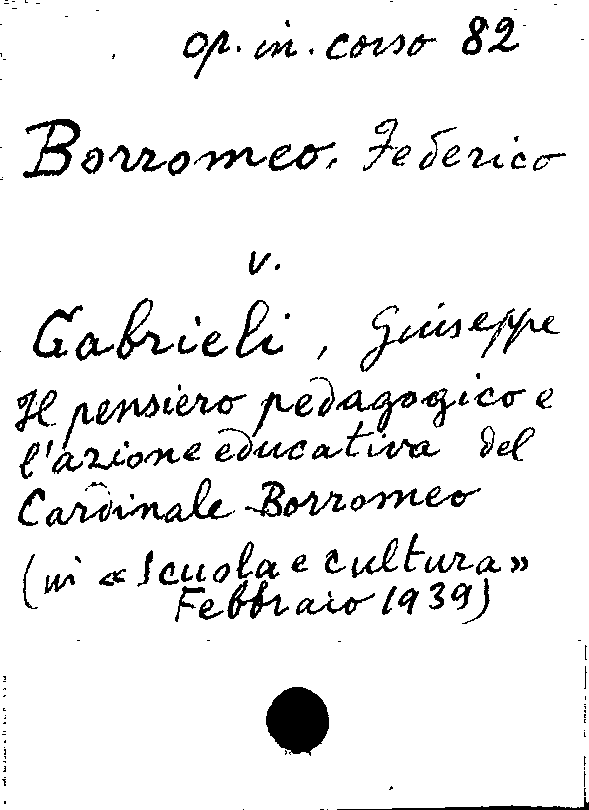 op. in. corso 82
Borromeo, Federico
v.
Gabrieli, Giuseppe
Il pensiero pedagogico e
l'azione educativa del
Cardinale Borromeo
(in «Scuola e cultura»
Febbraio 1939)